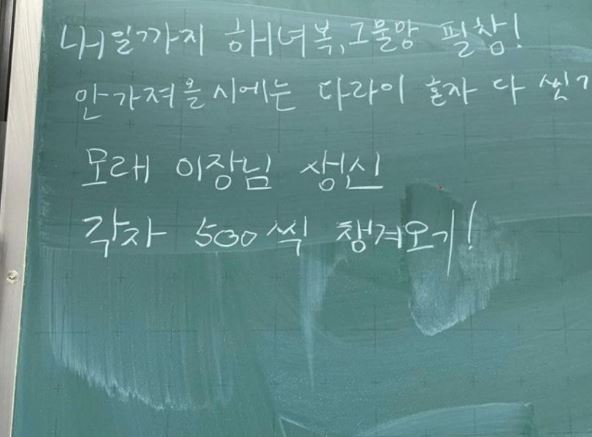 내일까지 해녀복,그물망 필참!
안가져올시에는 다라이 혼자 다 씻기
모래 이장님 생신
각자 500씩 챙겨오기!